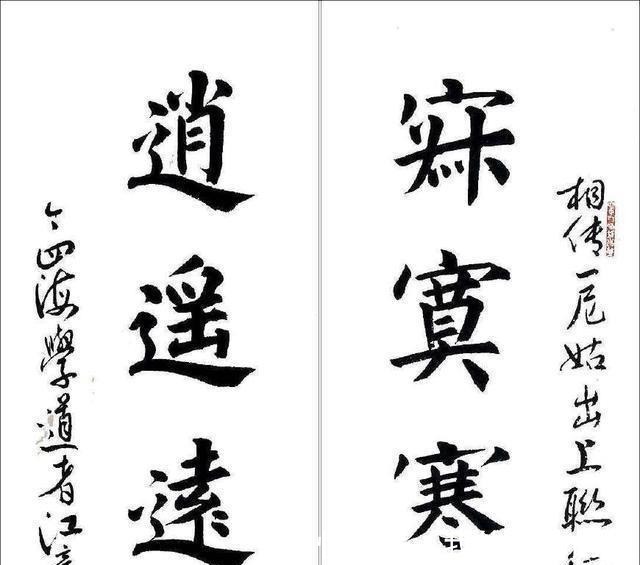 相传一尼姑出上聯
寂寞寒
逍遥遠
四海學道者江